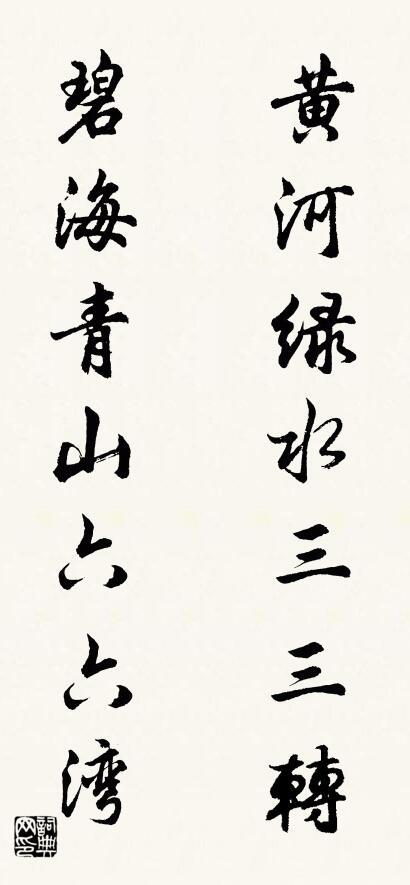 黄河绿水三三轉
碧海青山六六湾
詞典网印